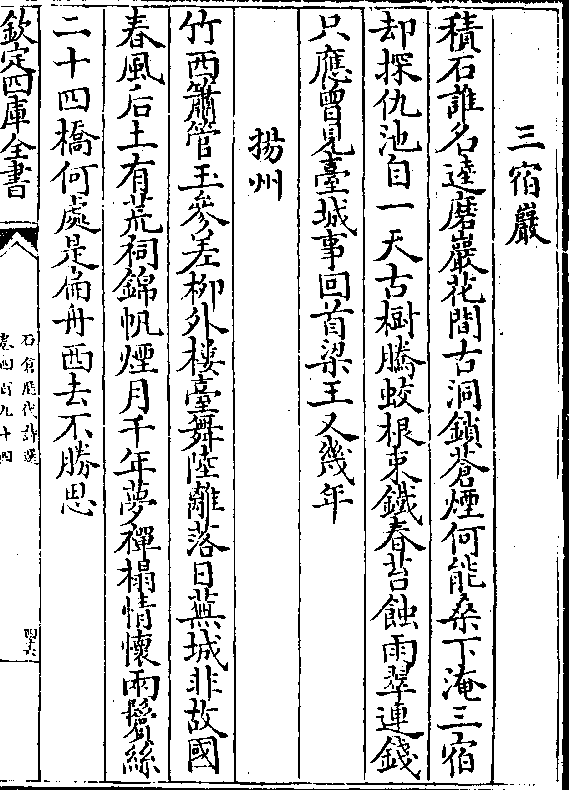 三宿巖
積石誰名達磨巖花間古洞鎖蒼煙何能桑下淹三宿
却探仇池自一天古樹騰蛟根束鐵春苔蝕雨翠連錢
只應曾見臺城事回首梁王又幾年
揚州
竹西簫管玉參差柳外楼臺舞陸離落日蕪城非故國
春風后土有荒祠錦帆煙月千年夢禪榻情懷兩鬢絲
二十四橋何處是扁舟西去不勝思
欽定四庫全書
石倉歴代詩選
卷四百九十四